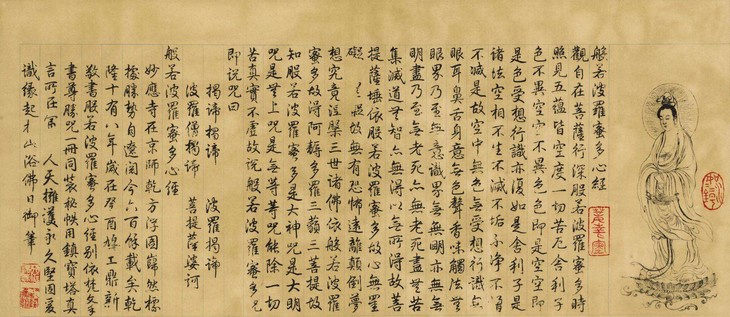 般若波羅蜜多心經
觀自在菩薩行深般若波羅蜜多時
照見五蘊皆空度一切苦厄舍利子
色不異空空不異色色即是空空即
是色受想行識亦復如是舍利子是
諸法空相不生不滅不垢不淨不增
不減是故空中無色無受想行識無
眼耳鼻舌身意無色聲香味觸法無
眼界乃至無意識界無無明亦無無
明盡乃至無老死亦無老死盡無苦
集滅道無智亦無得以無所得故菩
提薩埵依般若波羅蜜多故心無罣
礙故無有恐怖遠離顛倒夢
想究竟涅槃三世諸佛依般若波羅
蜜多故得阿耨多羅三藐三菩提故
知般若波羅蜜多是大神咒是大明
咒是無上咒是無等等咒能除一切
苦真實不虛故說般若波羅蜜多咒
即說咒曰
揭諦揭諦 波羅揭諦
波羅僧揭諦 菩提薩婆訶
般若波羅蜜多心經
妙應寺在京師乾方浮圖巋然標
據勝勢自遼閱今六百餘載矣乾
隆十有八年歲在癸酉鳩工鼎新
敬書般若波羅蜜多心經別依梵文手
書尊勝咒一冊同裝秘帙用鎮寶塔真
言所在 人天擁護永久堅固爰
識緣起浴佛日御筆